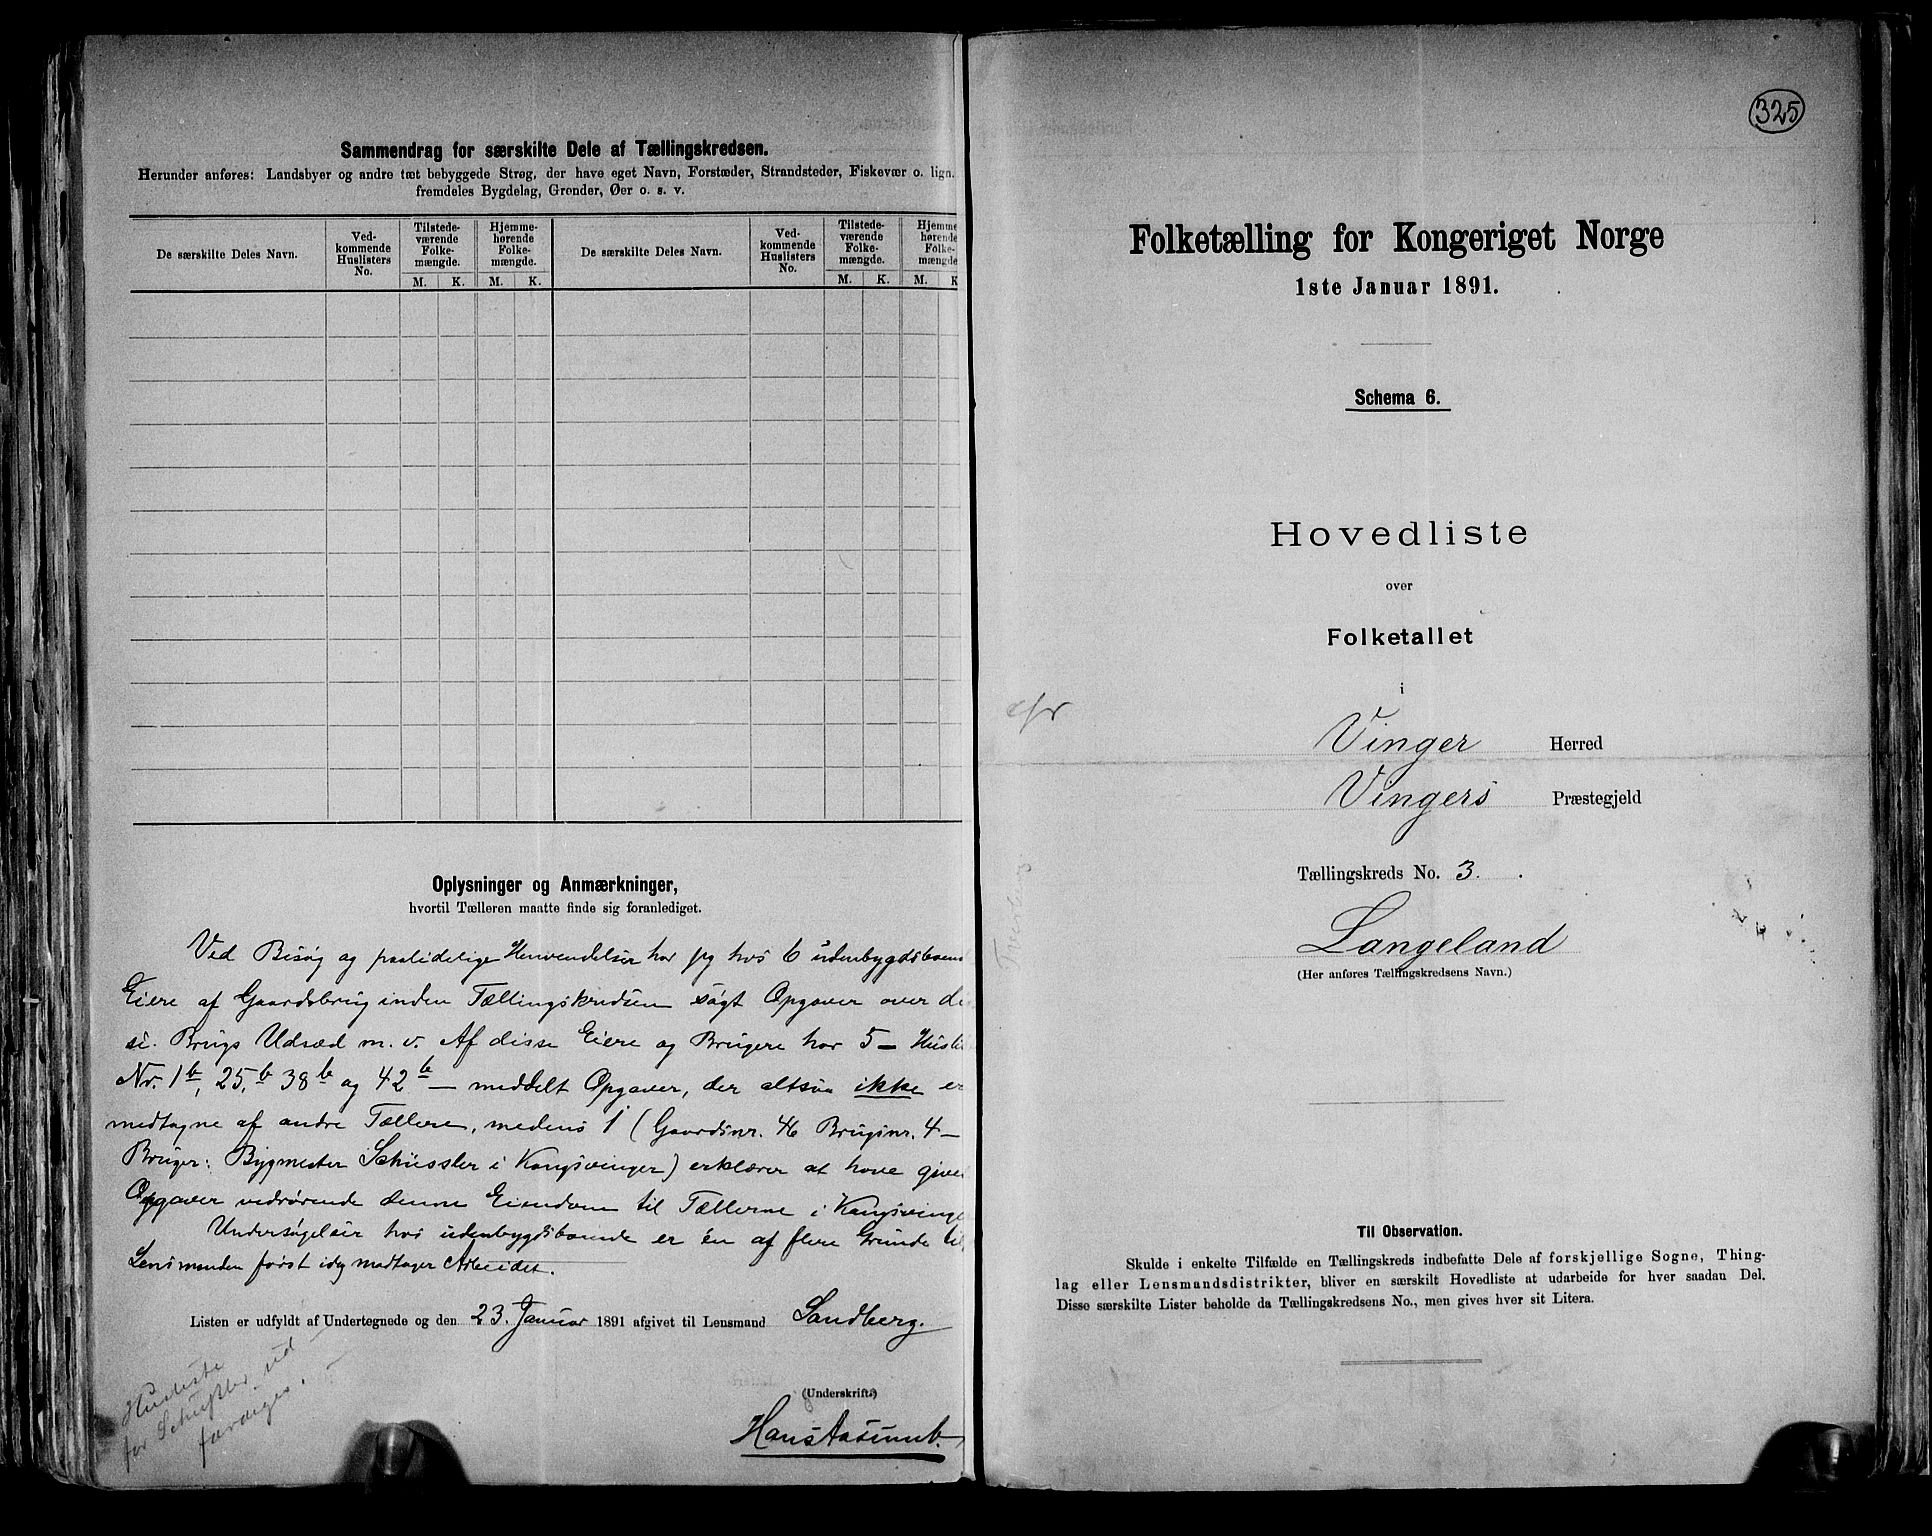 Sammendrag for særskilte Dele af Tællingskredsen.
Herunder anføres: Landsbyer og andre tæt bebyggede Strøg, der have eget Navn, Forstæder, Strandsteder, Fiskevær o. lign.
fremdeles Bygdelag, Grender, Øer o. s. v.
De særskilte Deles Navn.
Ved-
kommende
Huslisters
No.
Tilstede-
værende
Folke-
mængde.
M. K.
Hjemme-
hørende
Folke-
mængde.
M. K.
De særskilte Deles Navn.
Ved-
kommende
Huslisters
No.
Tilstede-
værende
Folke-
mængde.
M. K.
Hjemme
hørende
Folke-
mængde
M. K
Oplysninger og Anmærkninger,
hvortil Tælleren maatte finde sig foranlediget.
Ved Besøg og paalidelige Henvendelser har jeg hos 6 udenbygdsboend
Eiere af Gaardsbrug inden Tællingskredsen søgt Opgaver over di
se. Brugs Udsæd m. v. Af disse Eiere og Brugere har 5 – Husli
Nr. 1 b, 25, b 38 b og 42 b – meddelt Opgaver, der altsaa ikke er
medtagne af andre Tællere, medens 1 (Gaardsnr. 46 Brugsnr. 4 –
Bruger: Bygmester Schüssler i Kongsvinger) erklærer at have givet
Opgaver vedrørende denne Eiendom til Tællerne i Kongsvinge
Undersøgelser hos udenbygdsboende er én af flere Grunde til
Lensmanden først idag modtager Arbeidet.
Listen er udfyldt af Undertegnede og den 23. Januar 1891 afgivet til Lensmand Sandberg.
(Underskrift)
Husliste
for Schüssler ud
færdiges.
325
Folketælling for Kongeriget Norge
1ste Januar 1891.
Schema 6.
Hovedliste
over
Folketallet
i
Vinger Herred
Vingers Præstegjeld
Tællingskreds No. 3.
Langeland
(Her anføres Tællingskredsens Navn.)
Til Observation.
Skulde i enkelte Tilfælde en Tællingskreds indbefatte Dele af forskjellige Sogne, Thing-
lag eller Lensmandsdistrikter, bliver en særskilt Hovedliste at udarbeide for hver saadan Del.
Disse særskilte Lister beholde da Tællingskredsens No., men gives hver sit Litera.